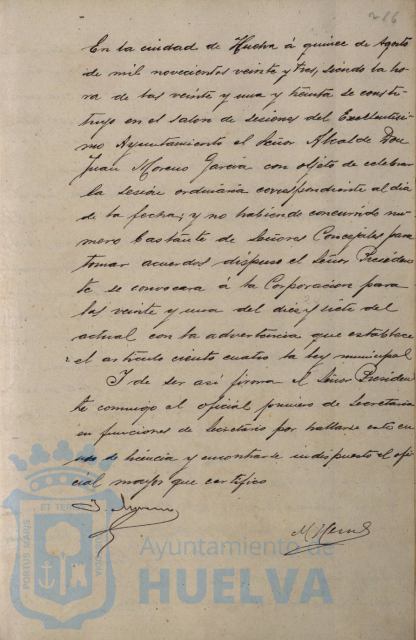 286
En la ciudad de Huelva á quince de Agosto
de mil novecientos veinte y tres, siendo la ho
ra de las veinte y una y treinta se consti-
tuyo en el salon de sesiones del Excelentisi-
mo Ayuntamiento el Señor Alcalde Don
Juan Moreno Garcia con objeto de celebrar
la sesión ordinaria correspondiente al dia
de la fecha; y no habiendo concurrido nu-
mero bastante de Señores Concejales para
tomar acuerdos dispuso el Señor Presiden-
te se convocara á la Corporacion para
las veinte y una del diez y siete del
actual con la advertencia que establece
el articulo ciento cuatro la ley municipal
Y de ser así firma el Señor Presiden
te conmigo el oficial primero de Secretaria
en funciones de Secretario por hallarse este en
uso de licencia y encontrarse indispuesto el ofi
cial mayor que certifico
J. Moreno
Ayuntamiento de
HUELVA